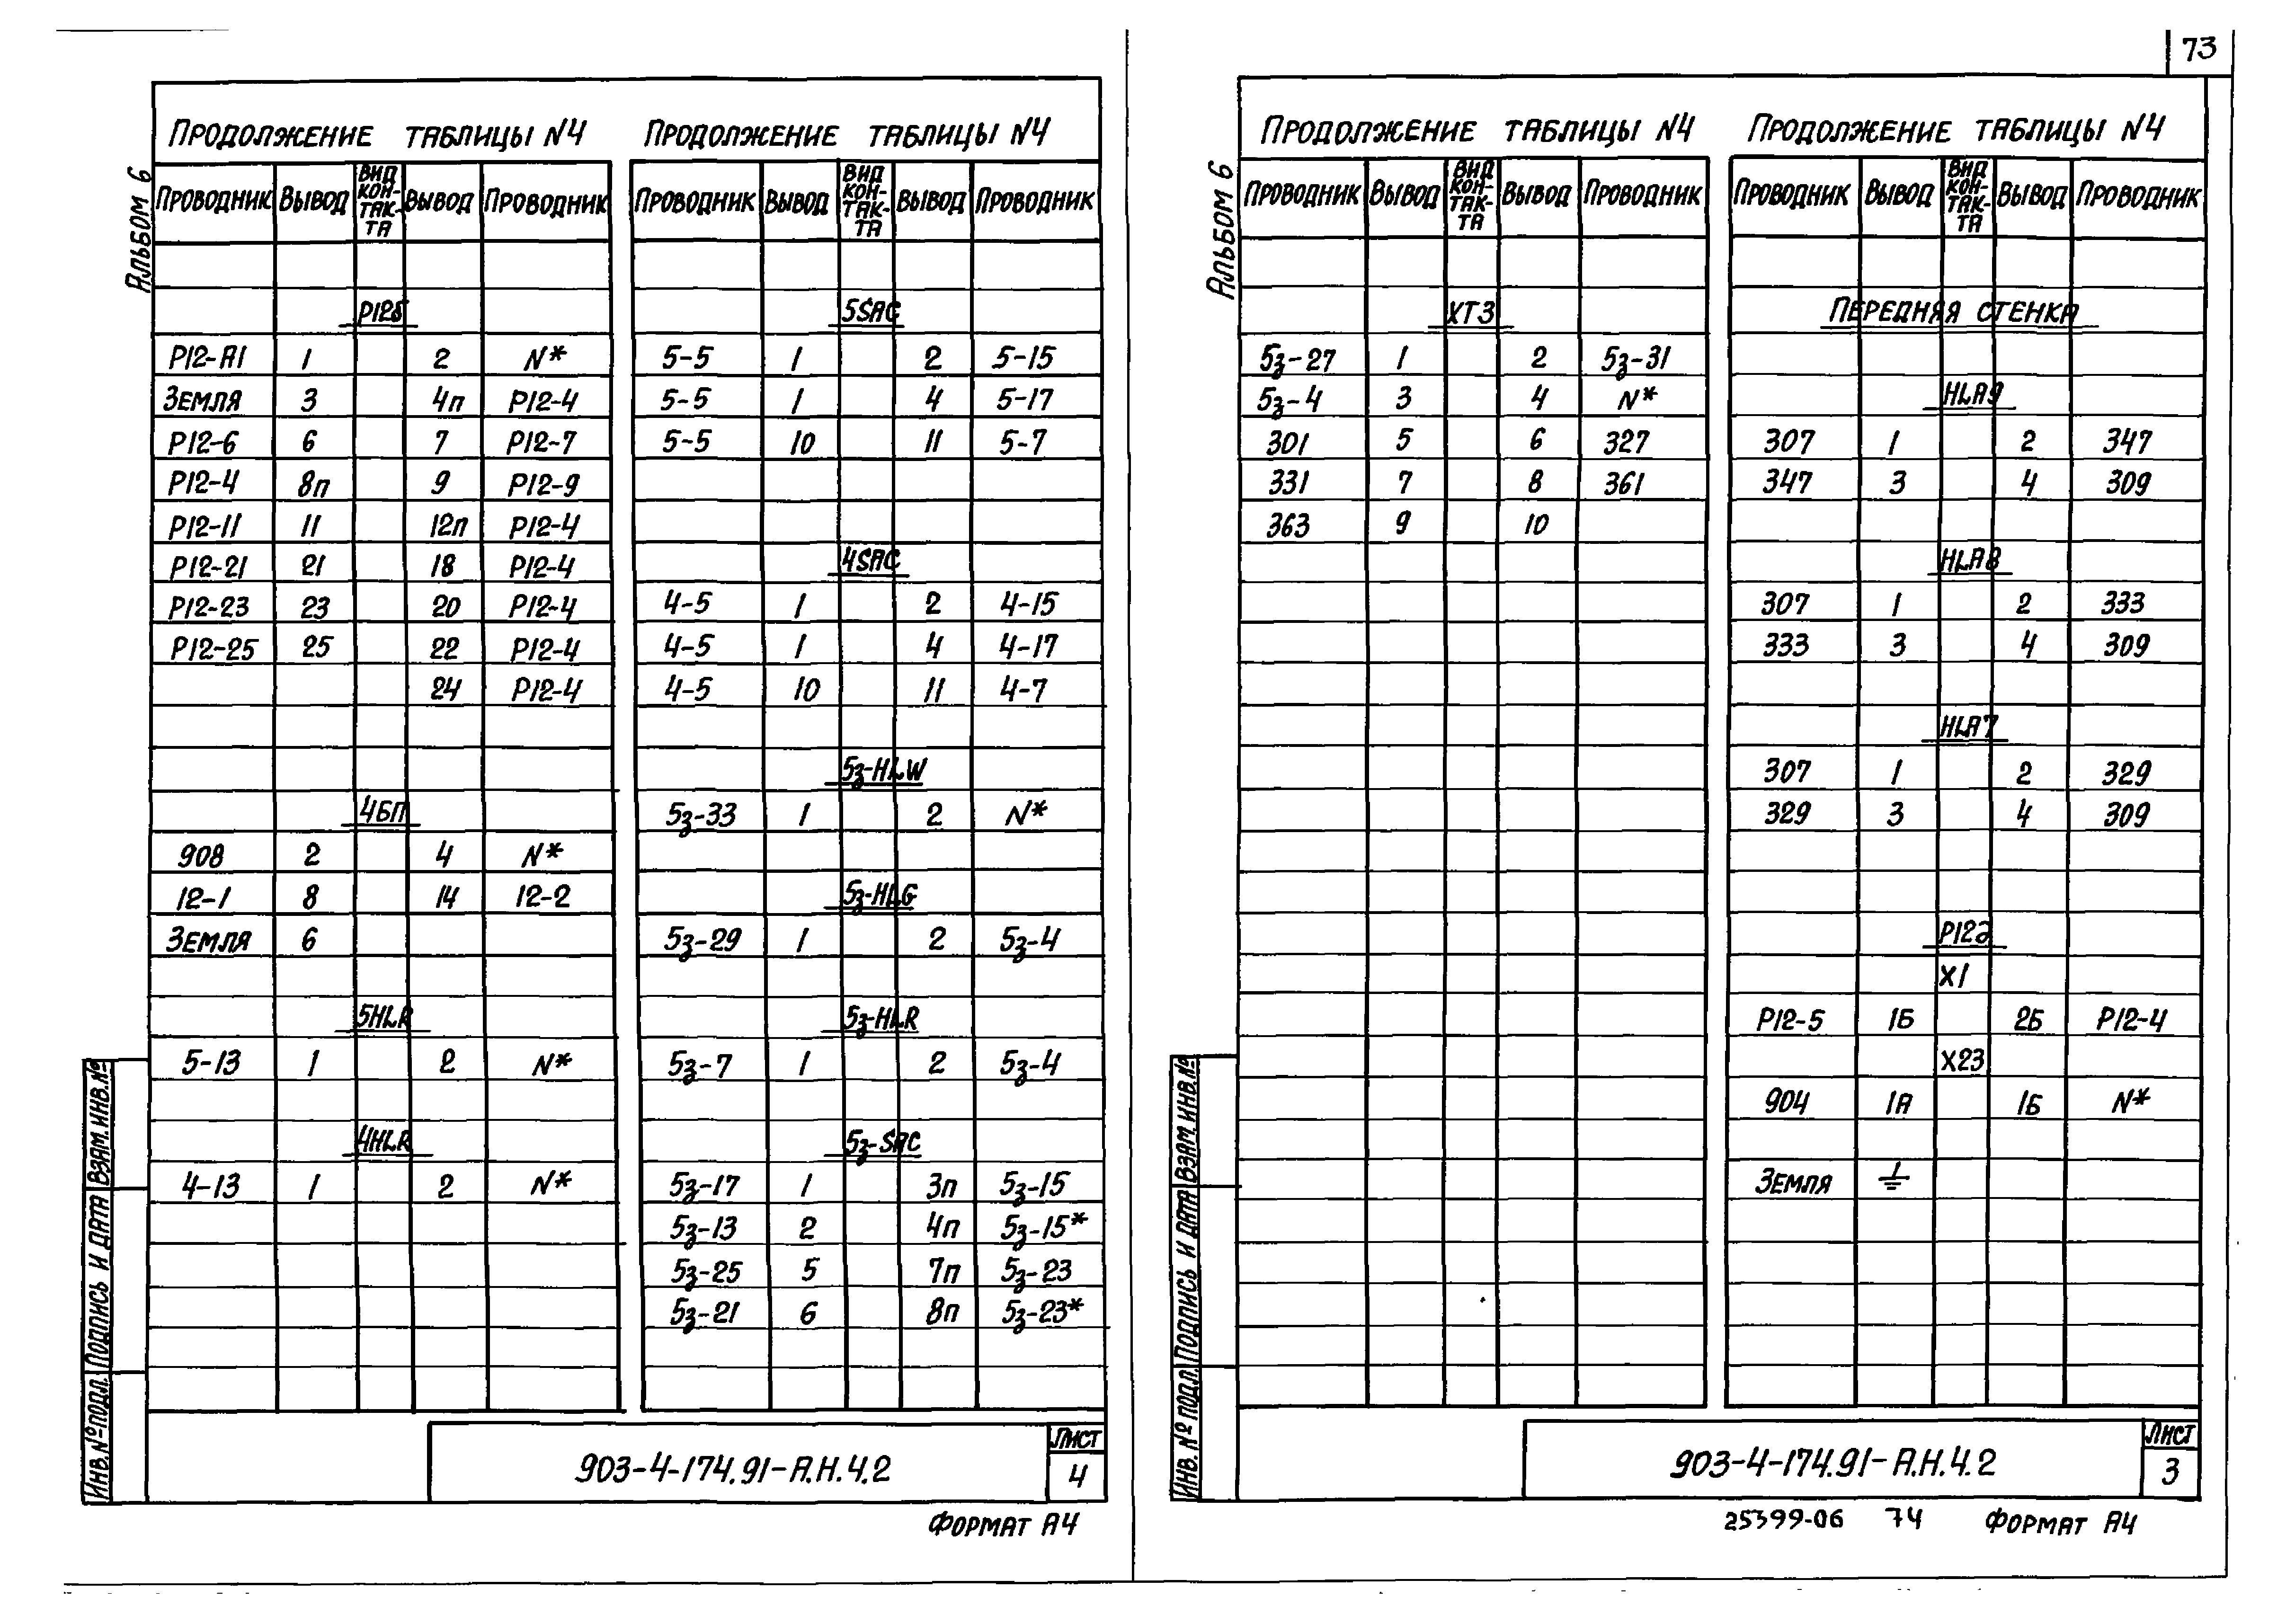 73
Альбом 6
Продолжение таблицы N4
Проводник Вывод Вид контакта Вывод Проводник
Р12б
Р12-А1 1 2 N*
Земля 3 4п Р12-4
Р12-6 6 7 Р12-7
Р12-4 8п 9 Р12-9
Р12-11 11 12п Р12-4
Р12-21 21 18 Р12-4
Р12-23 23 20 Р12-4
Р12-25 25 22 Р12-4
24 Р12-4
4БП
908 2 4 N*
12-1 8 14 12-2
Земля 6
5HLR
5-13 1 2 N*
4HLR
4-13 1 2 N*
Продолжение таблицы N4
Проводник Вывод Вид контакта Вывод Проводник
5SAC
5-5 1 2 5-15
5-5 1 4 5-17
5-5 10 11 5-7
4SAC
4-5 1 2 4-15
4-5 1 4 4-17
4-5 10 11 4-7
5з-HLW
5з-33 1 2 N*
5з-HLG
5з-29 1 2 5з-4
5з-HLR
5з-7 1 2 5з-4
5з-SAC
5з-17 1 3п 5з-15
5з-13 2 4п 5з-15*
5з-25 5 7п 5з-23
5з-21 6 8п 5з-23*
Инв. № подл. Подпись и дата Взам. инв. №
903-4-174.91-А.Н.4.2
Лист
4
Формат А4
Альбом 6
Продолжение таблицы N4
Проводник Вывод Вид контакта Вывод Проводник
ХТ3
5з-27 1 2 5з-31
5з-4 3 4 N*
301 5 6 327
331 7 8 361
363 9 10
Продолжение таблицы N4
Проводник Вывод Вид контакта Вывод Проводник
Передняя стенка
HLA9
307 1 2 347
347 3 4 309
HLA8
307 1 2 333
333 3 4 309
HLA7
307 1 2 329
329 3 4 309
Р12д
Х1
Р12-5 1Б 2Б Р12-4
Х23
904 1А 1Б N*
Земля ⏚
Инв. № подл. Подпись и дата Взам. инв. №
903-4-174.91-А.Н.4.2
Лист
3
25399-06 74 Формат А4